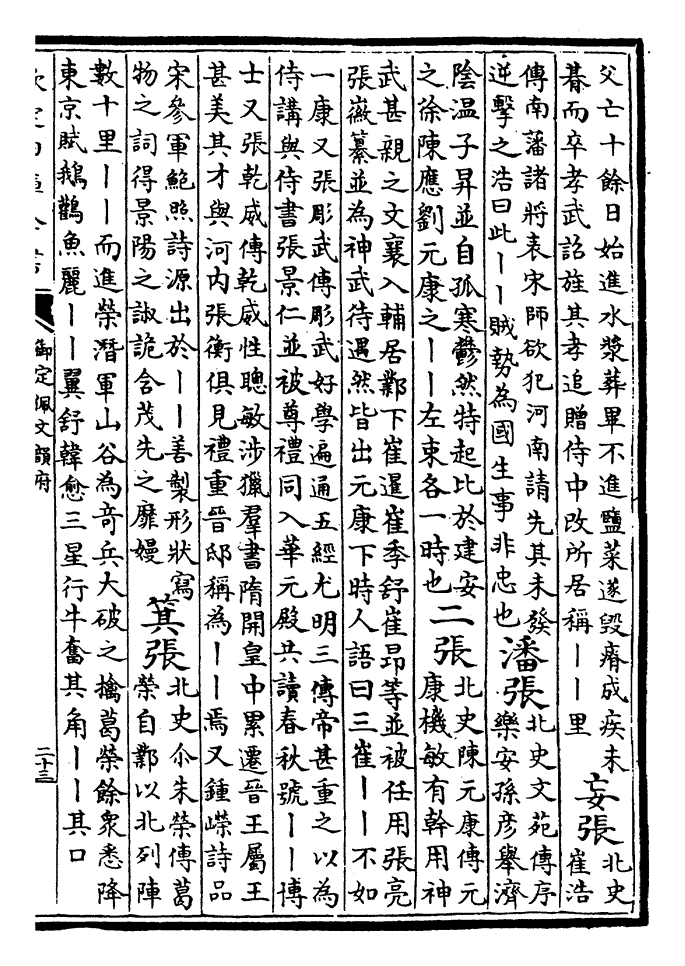 父亡十餘日始進水漿葬畢不進鹽菜遂毀瘠成疾未
朞而卒孝武詔旌其孝追贈侍中改所居稱丨丨里
妄張
北史
崔浩
傳南藩諸將表宋師欲犯河南請先其未發
逆擊之浩曰此丨丨賊勢為國生事非忠也
潘張
北史文苑傳序
樂安孫彥舉濟
陰温子昇並自孤寒鬱然特起比於建安
之徐陳應劉元康之丨丨左束各一時也
二張
北史陳元康傳元
康機敏有幹用神
武甚親之文襄入輔居鄴下崔暹崔季舒崔昂等並被任用張亮
張徽纂並為神武待遇然皆出元康下時人語曰三崔丨丨不如
一康又張彫武傳彫武好學遍通五經尤明三傳帝甚重之以為
侍講與侍書張景仁並被尊禮同入華元殿共讀春秋號丨丨博
士又張乾威傳乾威性聰敏涉獵羣書隋開皇中累遷晉王屬王
甚美其才與河内張衡俱見禮重晉邸稱為丨丨焉又鍾嶸詩品
宋參軍鮑照詩源出於丨丨善製形狀寫
物之詞得景陽之諔詭含茂先之靡嫚
箕張
北史尒朱榮傳葛
榮自鄴以北列陣
數十里丨丨而進榮潛軍山谷為竒兵大破之擒葛榮餘衆悉降
東京賦鵝鸛魚麗丨丨翼舒韓愈三星行牛奮其角丨丨其口
御定佩文韻府
二十三